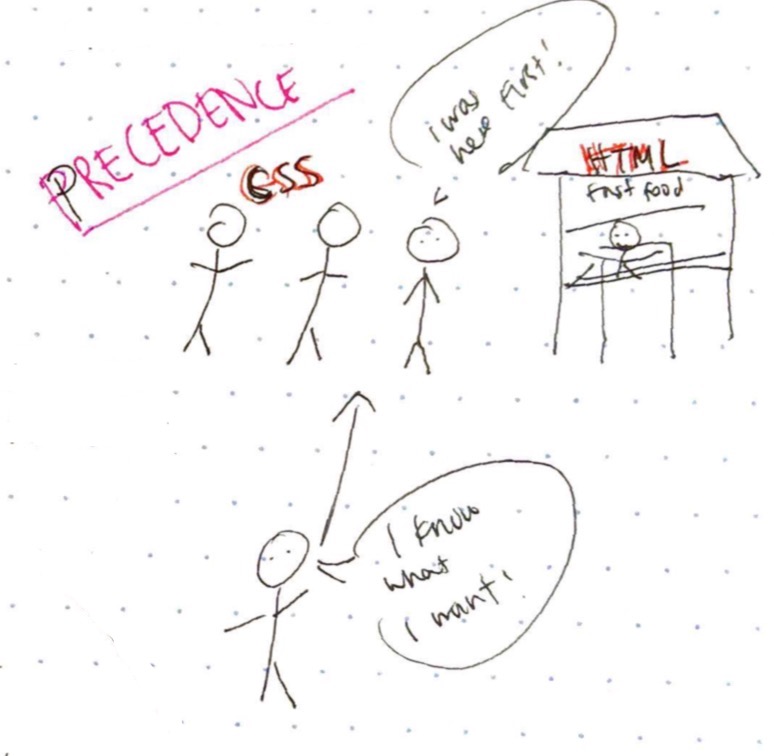 PRECEDENCE
CSS
i was
here first!
HTML
Fast food
I know
what
I want!